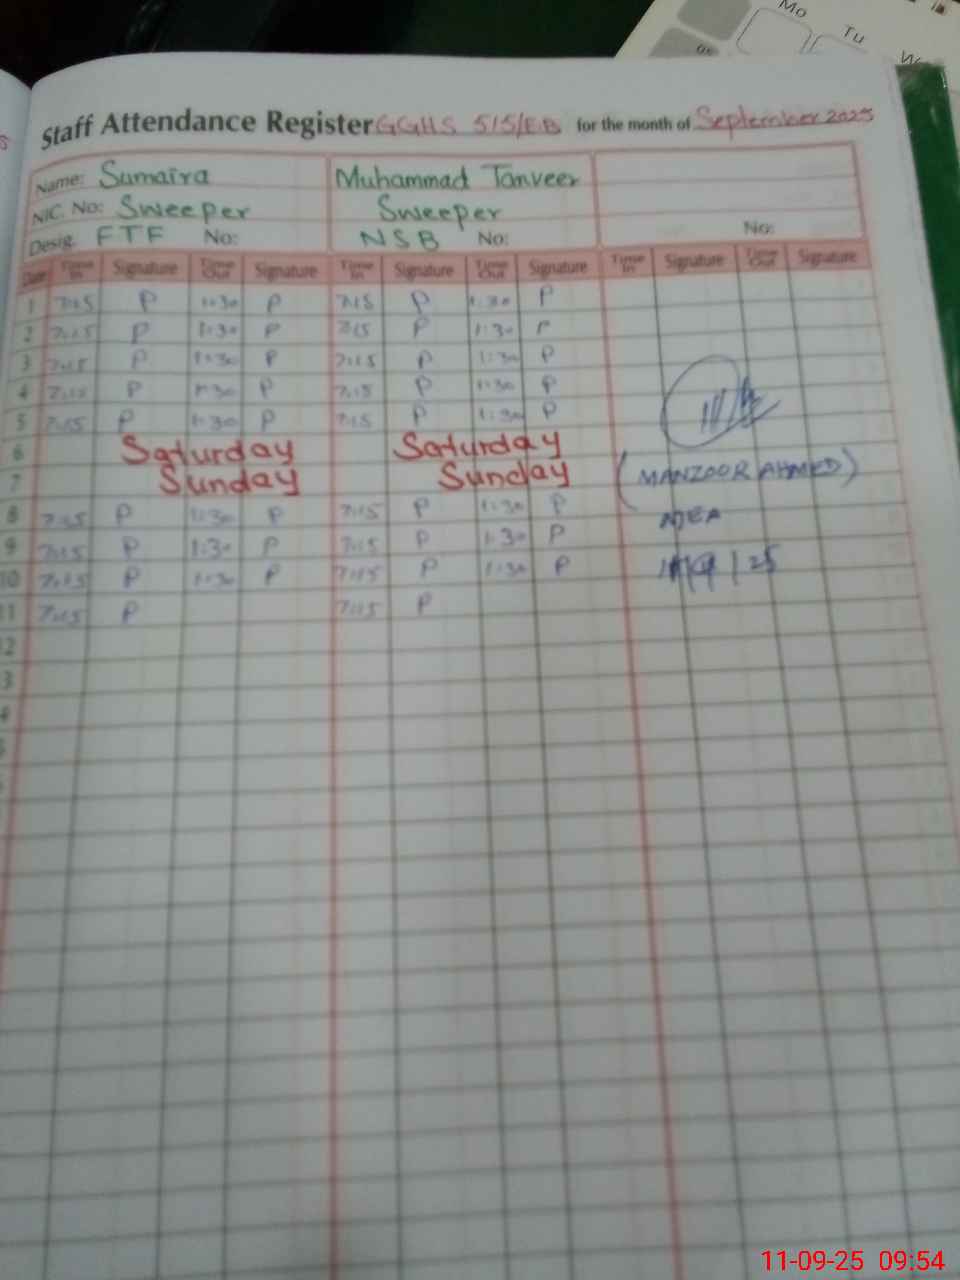 Mo
Tu
Staff Attendance Register GGHS 515/EB for the month of September 2025
Name: Sumaira Muhammad Tanveer
NIC. No: Sweeper Sweeper
Desig. FTF No: NSB No: No:
Date Time In Signature Time Out Signature Time In Signature Time Out Signature Time In Signature Time Out Signature
1 7:15 P 1:30 P 7:15 P 1:30 P
2 7:15 P 1:30 P 7:15 P 1:30 P
3 7:15 P 1:30 P 7:15 P 1:30 P
4 7:15 P 1:30 P 7:15 P 1:30 P
5 7:15 P 1:30 P 7:15 P 1:30 P
6 Saturday Saturday
7 Sunday Sunday (MANZOOR AHMED)
8 7:15 P 1:30 P 7:15 P 1:30 P MEA
9 7:15 P 1:30 P 7:15 P 1:30 P
10 7:15 P 1:30 P 7:15 P 1:30 P
11 7:15 P 7:15 P
12
3
4
11-09-25 09:54